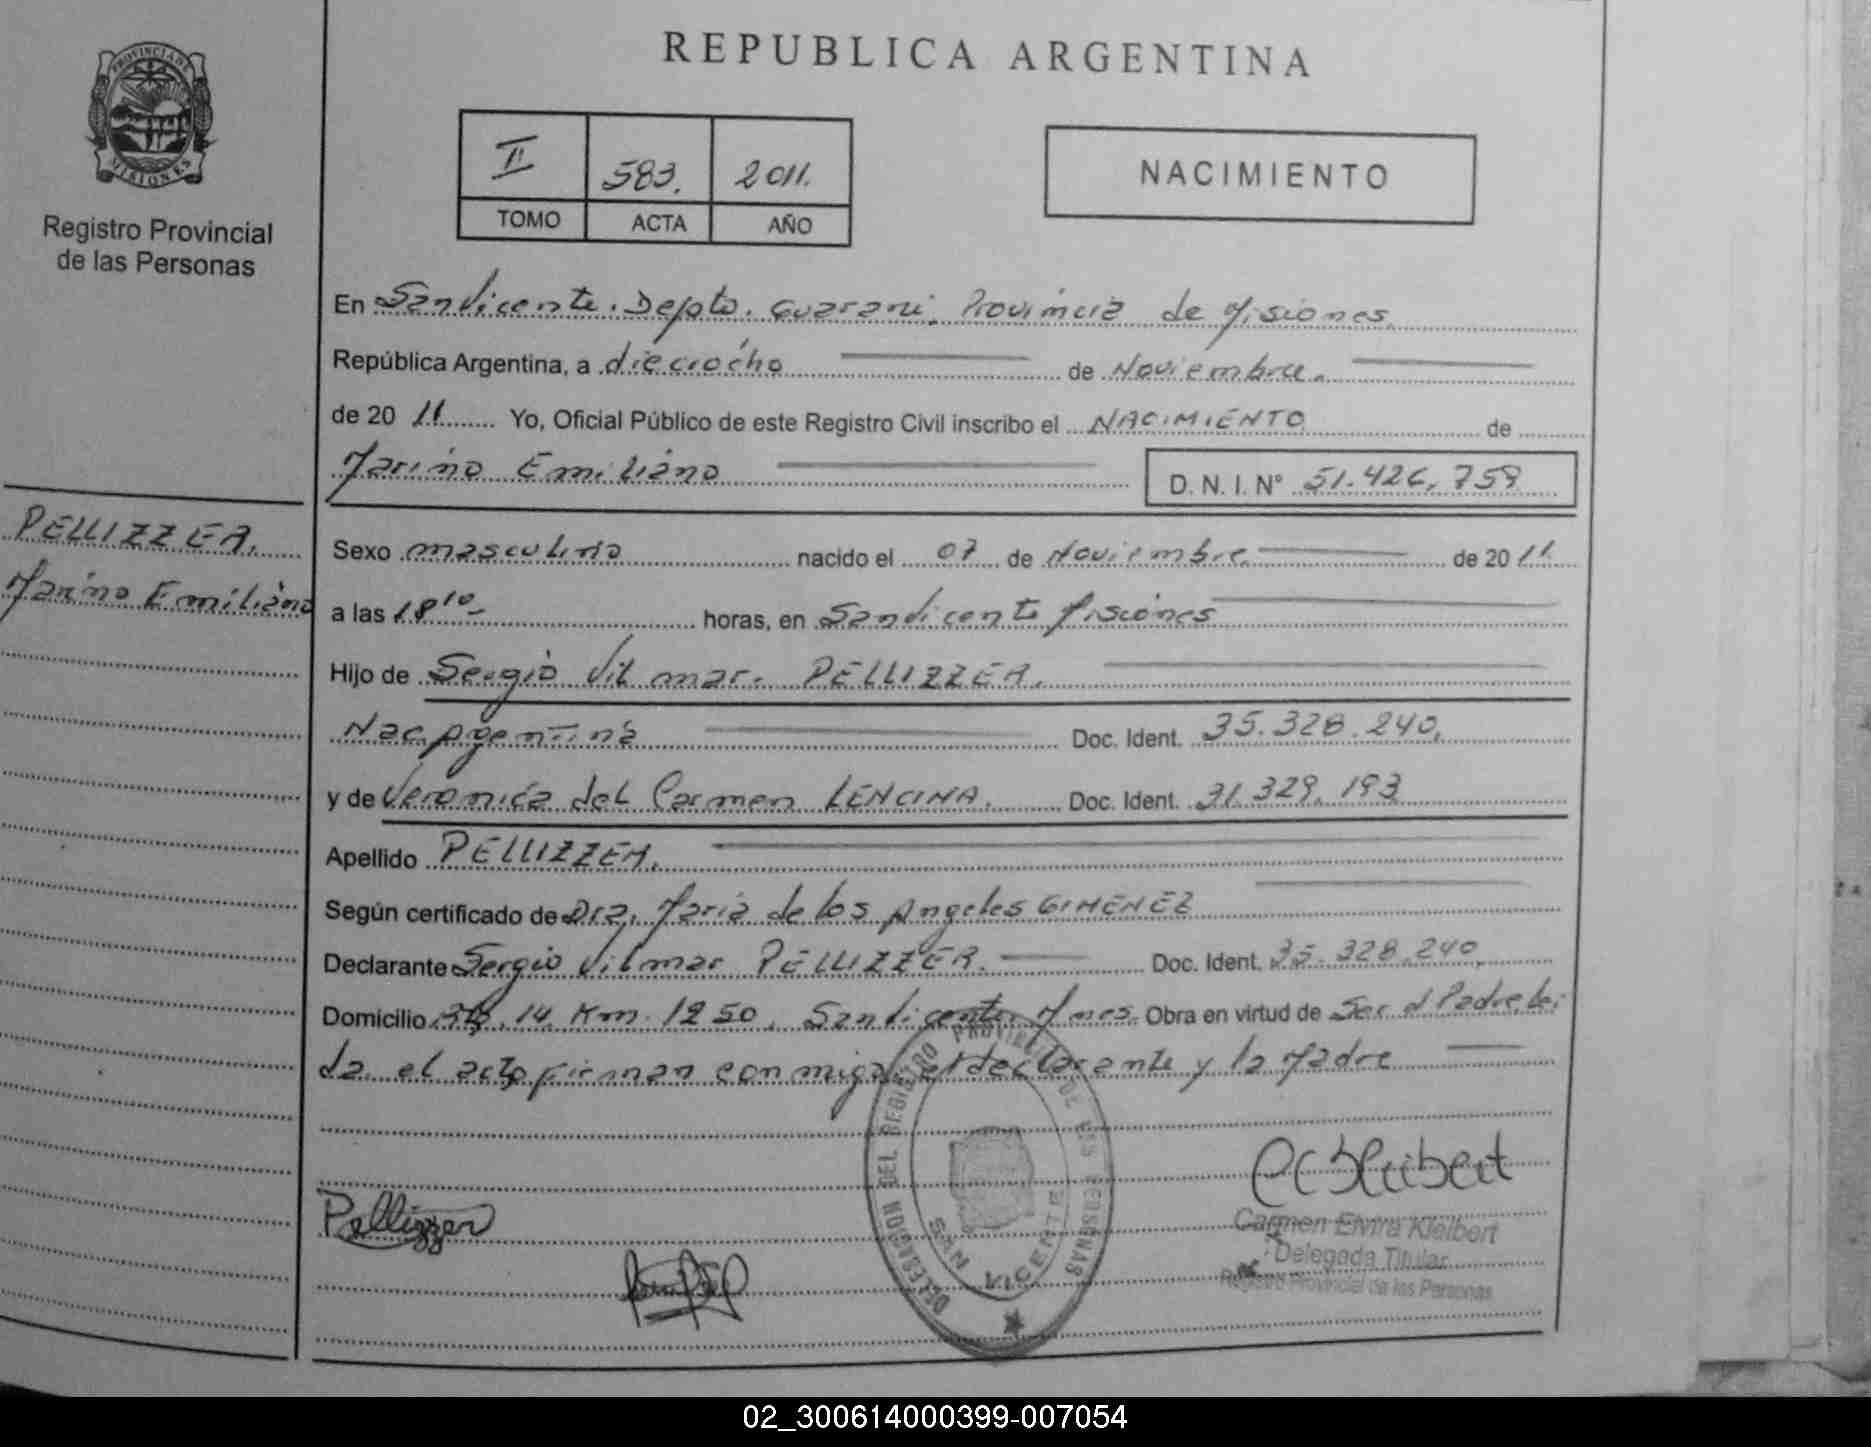 PROVINCIA DE
MISIONES
Registro Provincial
de las Personas
PELLIZZER.
Marino Emiliano
REPUBLICA ARGENTINA
II 583. 2011.
TOMO ACTA AÑO
NACIMIENTO
En San Vicente. Depto. Guarani. Provincia de Misiones.
República Argentina, a dieciocho de Noviembre.
de 20 11 Yo, Oficial Público de este Registro Civil inscribo el NACIMIENTO de
Marino Emiliano D. N. I. N° 51.426.759
Sexo masculino nacido el 07 de Noviembre de 20 11
a las 18 10 horas, en San Vicente Misiones
Hijo de Sergio Vilmar. PELLIZZER.
Nac. Argentina Doc. Ident. 35.328.240.
y de Veronica del Carmen LENCINA. Doc. Ident. 31.329.193
Apellido PELLIZZER.
Según certificado de Dra. Maria de los Angeles GIMENEZ
Declarante Sergio Vilmar PELLIZZER. Doc. Ident. 35.328.240.
Domicilio 14 Km. 1250. San Vicente Mnes. Obra en virtud de Ser el Padre, lei
da el acta firman conmigo el declarante y la Madre
Pellizzer
DELEGACION DEL REGISTRO PROVINCIAL DE LAS PERSONAS
SAN VICENTE
Carmen Elvira Kleibert
Delegada Titular
Registro Provincial de las Personas
02_300614000399-007054